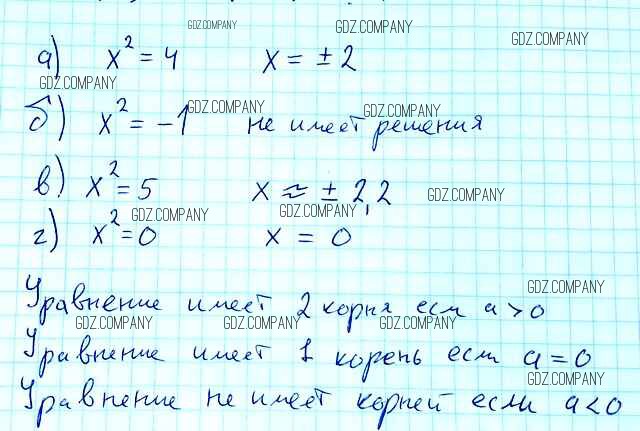 GDZ.COMPANY GDZ.COMPANY GDZ.COMPANY
а) x² = 4 x = ± 2
GDZ.COMPANY
б) x² = -1 не имеет решения
GDZ.COMPANY GDZ.COMPANY
в) x² = 5 x ≈ ± 2,2
GDZ.COMPANY
GDZ.COMPANY GDZ.COMPANY
г) x² = 0 x = 0
GDZ.COMPANY
Уравнение имеет 2 корня если a > 0
GDZ.COMPANY GDZ.COMPANY GDZ.COMPANY
Уравнение имеет 1 корень если a = 0
GDZ.COMPANY
Уравнение не имеет корней если a < 0